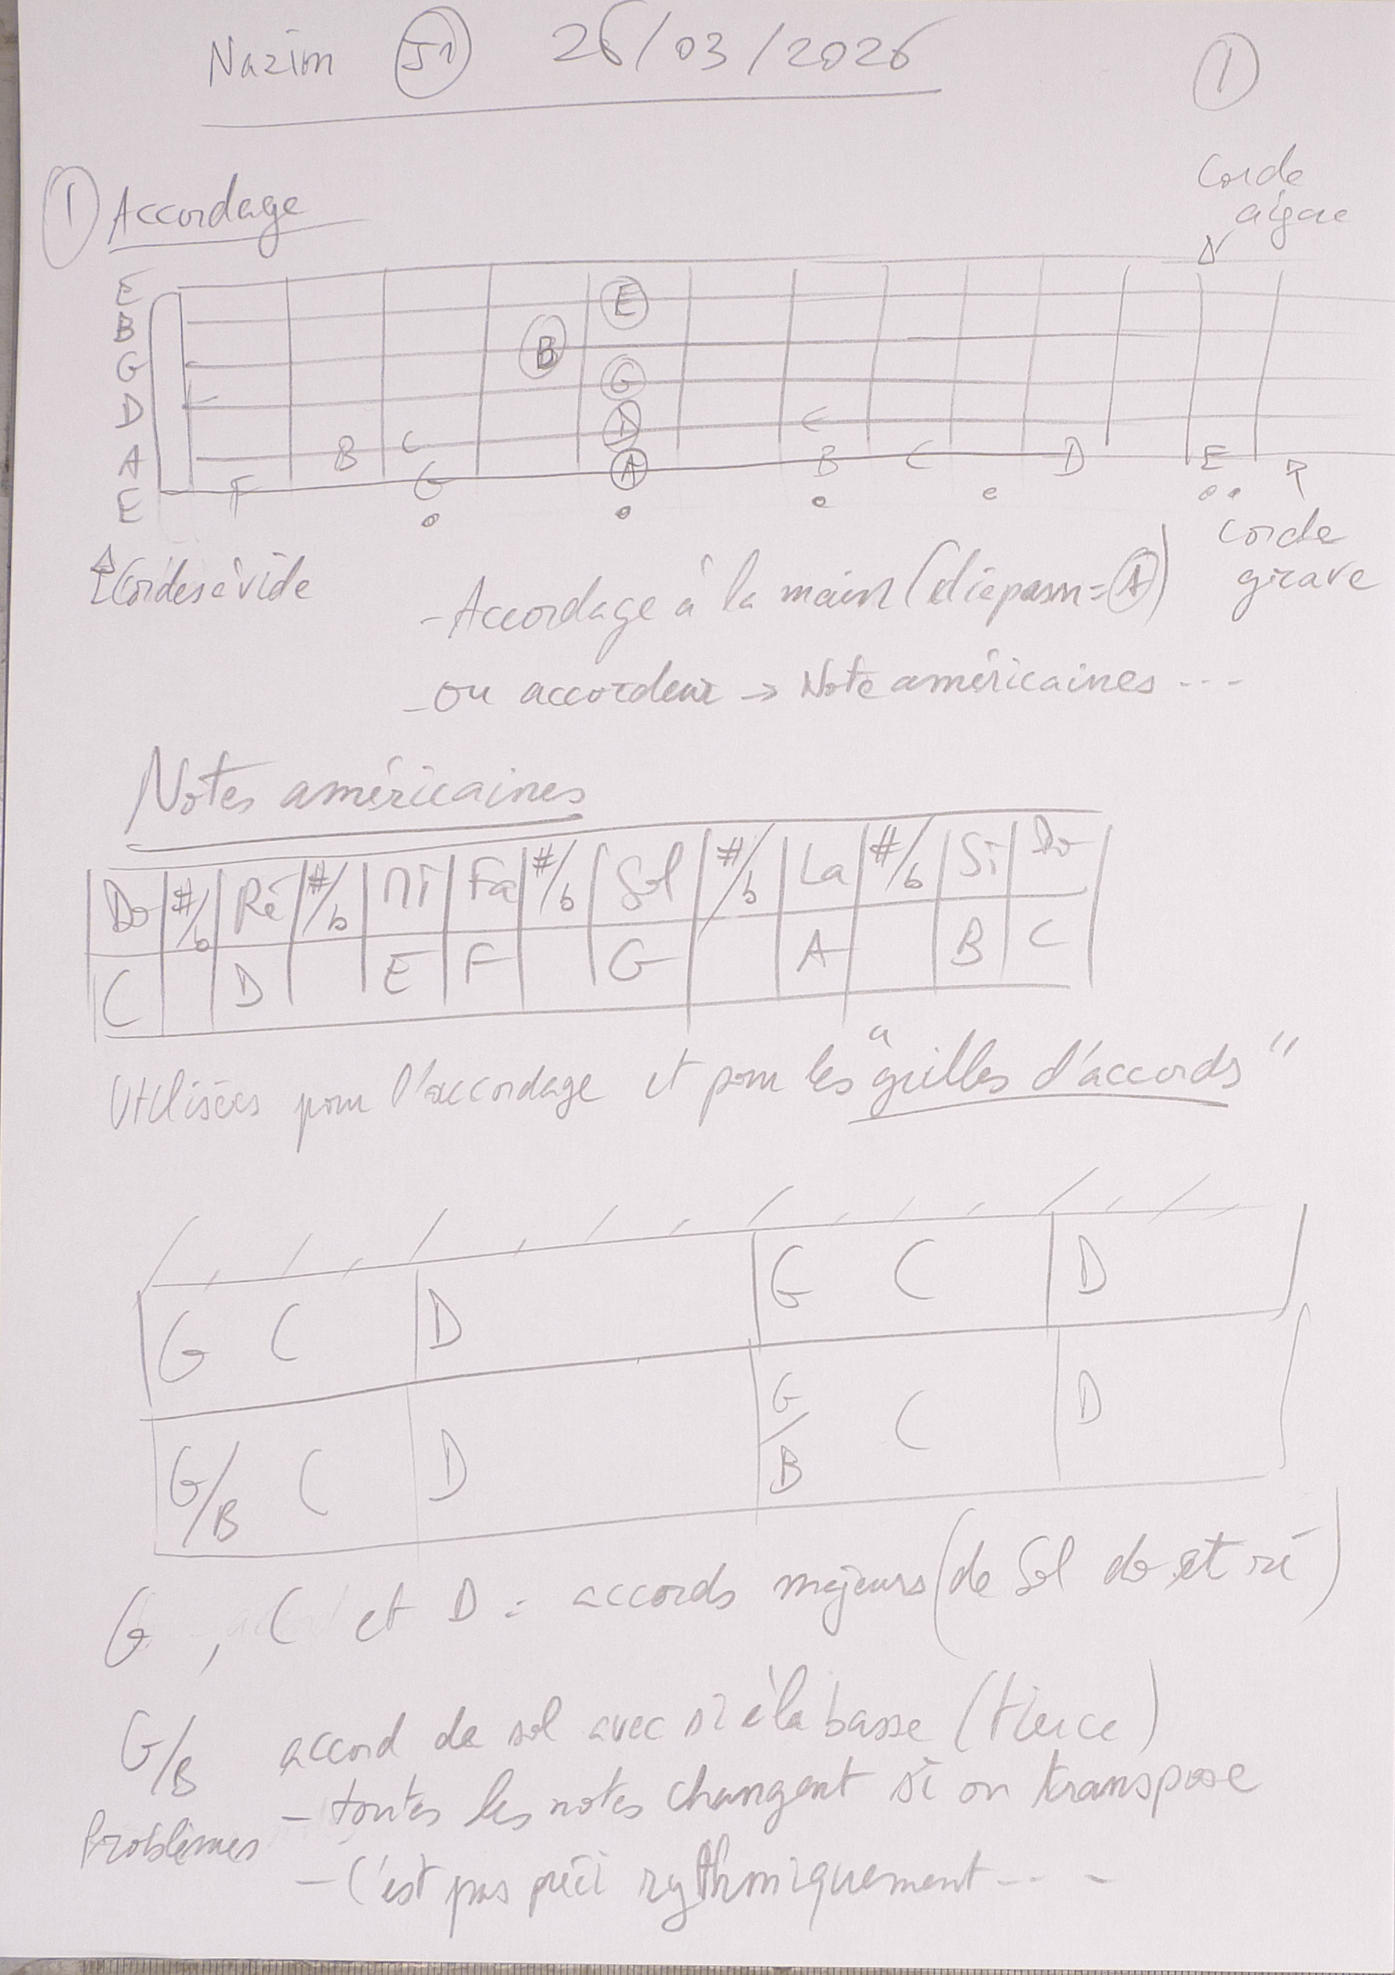 Nazim J1 26/03/2026 1
1 Accordage
Corde
aigae
E
B
G
D
A
E
E
B
G
D C
B C
F G A B C D E
↑ Cordes à vide
Corde
grave
- Accordage à la main (diapason = A)
- ou accordeur → Note américaines ...
Notes américaines
Do #/b Ré #/b Mi Fa #/b Sol #/b La #/b Si Do
C D E F G A B C
Utilisées pour l'accordage et pour les "grilles d'accords"
G C D G C D
G/B C D G/B C D
G, C et D = accords majeurs (de Sol do et ré)
G/B accord de sol avec si à la basse (tierce)
Problèmes - toutes les notes changent si on transpose
- C'est pas préci rythmiquement ... -